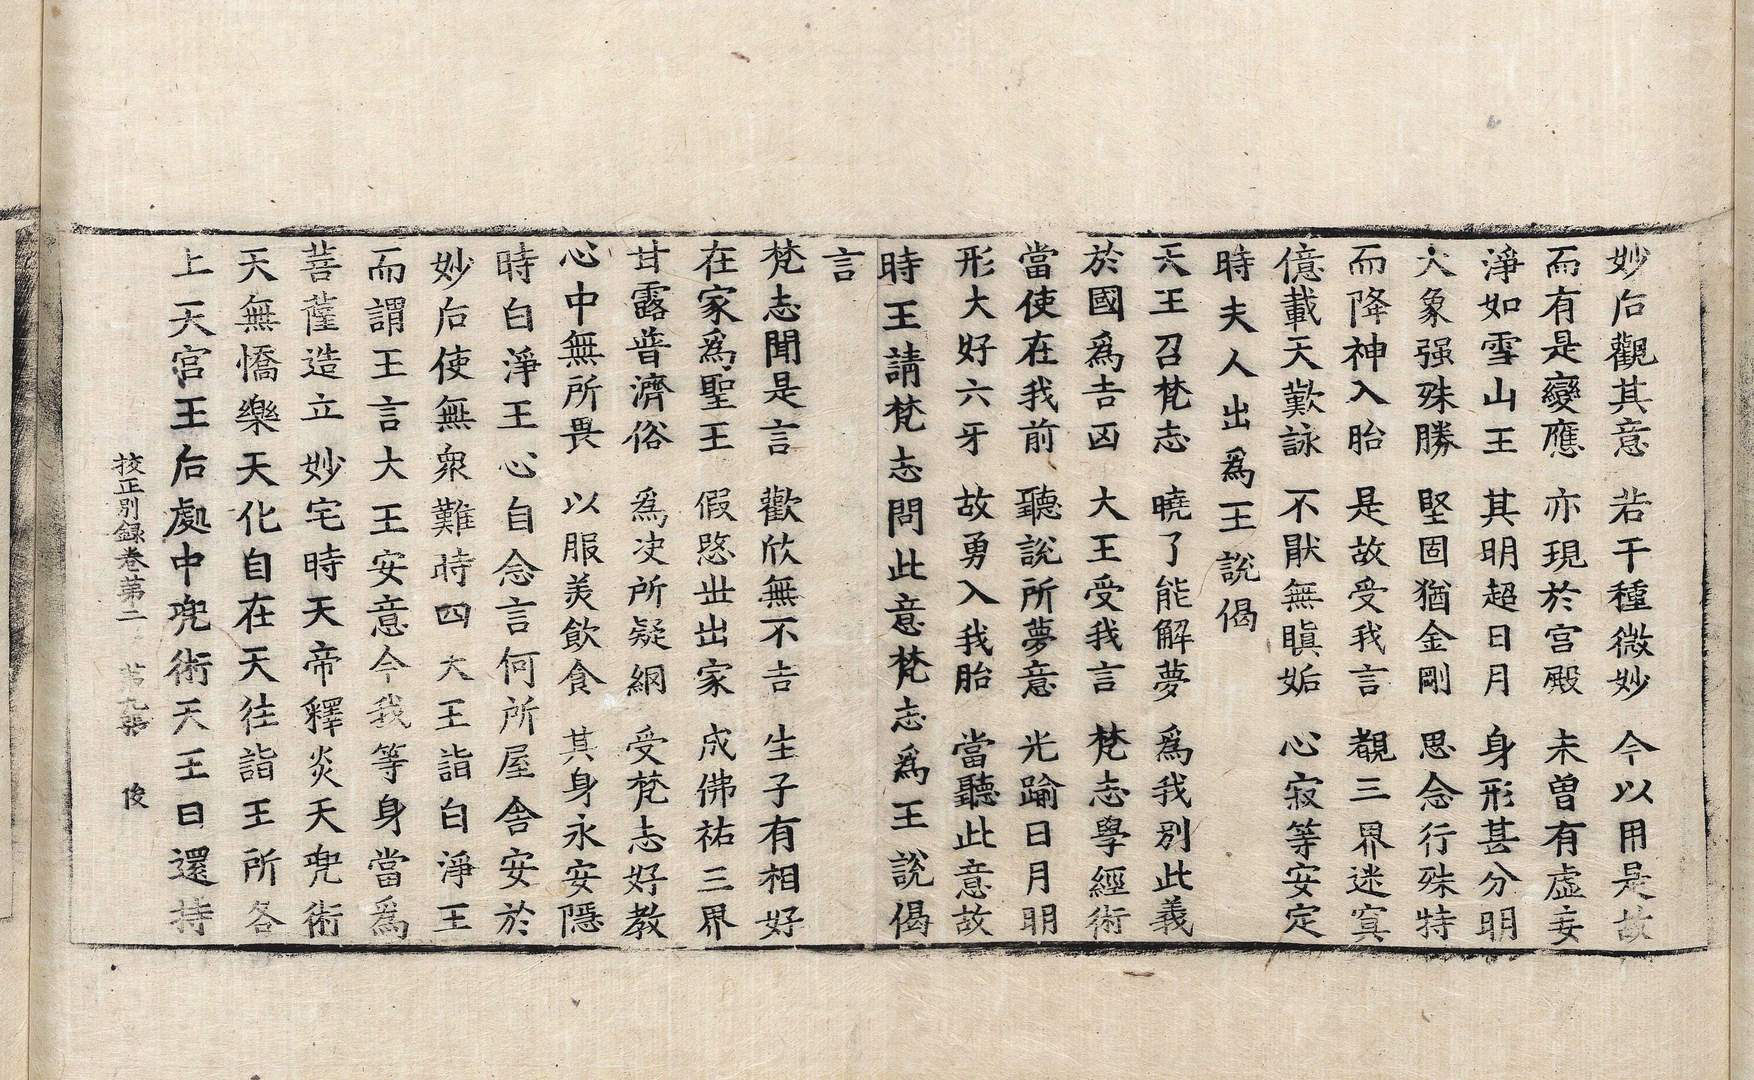 妙后觀其意　若干種微妙　今以用是故
而有是變應　亦現於宮殿　未曽有虛妄
淨如雪山王　其明超日月　身形甚分明
大象强殊勝　堅固猶金剛　思念行殊特
而降神入胎　是故受我言　覩三界迷冥
億載天歎詠　不猒無瞋妬　心寂等安定
時夫人出爲王說偈
天王召梵志　曉了能解夢　爲我別此義
於國爲吉凶　大王受我言　梵志學經術
當使在我前　聽說所夢意　光踰日月明
形大好六牙　故勇入我胎　當聽此意故
時王請梵志問此意梵志爲王說偈
言
梵志聞是言　歡欣無不吉　生子有相好
在家爲聖王　假愍丗出家　成佛祐三界
甘露普濟俗　爲决所疑網　受梵志好教
心中無所畏　以服美飲食　其身永安隱
時白淨王心自念言何所屋舍安於
妙后使無衆難時四大王詣白淨王
而謂王言大王安意今我等身當爲
菩薩造立妙宅時天帝釋炎天兜術
天無憍樂天化自在天往詣王所各
上天宮王后處中兜術天王曰還持
挍正別録卷第二　第九張　俊